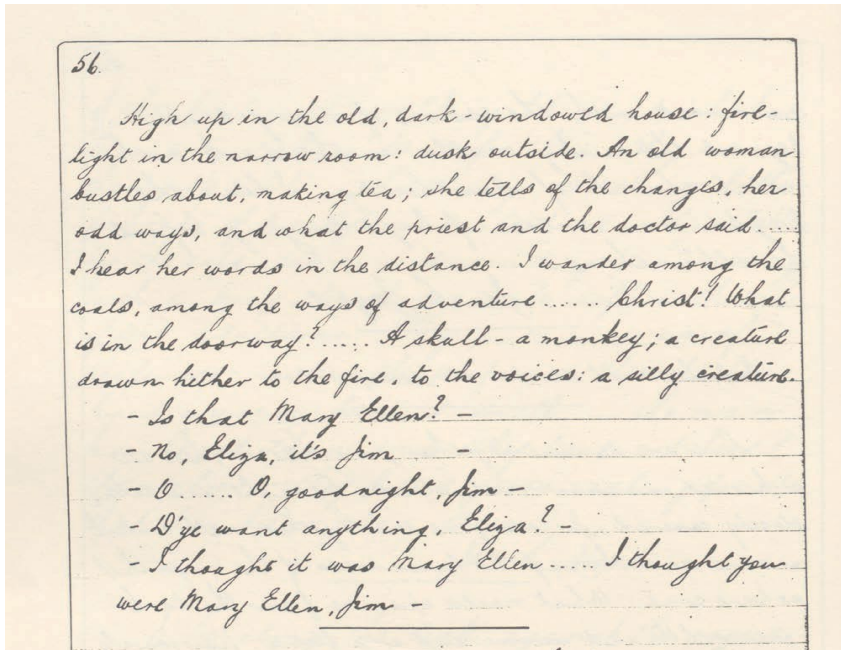 56.
High up in the old, dark-windowed house: fire-
light in the narrow room: dusk outside. An old woman
bustles about, making tea; she tells of the changes, her
odd ways, and what the priest and the doctor said.....
I hear her words in the distance. I wander among the
coals, among the ways of adventure...... Christ! What
is in the doorway?..... A skull - a monkey; a creature
drawn hither to the fire, to the voices: a silly creature.
- Is that Mary Ellen? -
- No, Eliza, it's Jim -
- O...... O, goodnight, Jim -
- D'ye want anything, Eliza? -
- I thought it was Mary Ellen..... I thought you
were Mary Ellen, Jim -